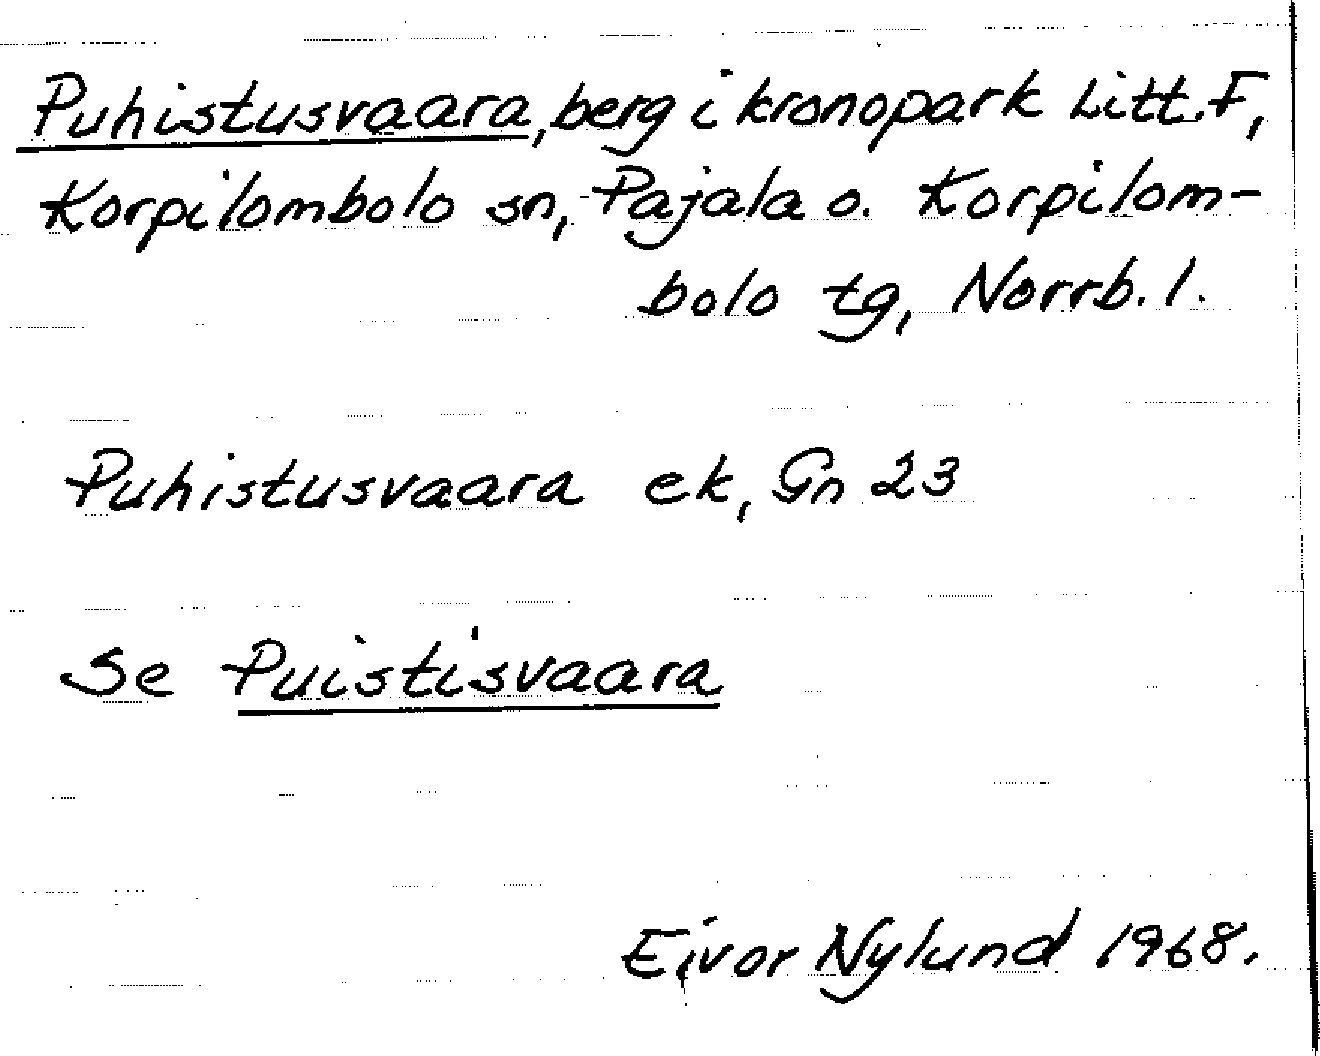 Puhistusvaara, berg i kronopark Litt. F,
Korpilombolo sn, Pajala o. Korpilom-
bolo tg, Norrb. l.
Puhistusvaara ek, Gn 23
Se Puistisvaara
Eivor Nylund 1968.